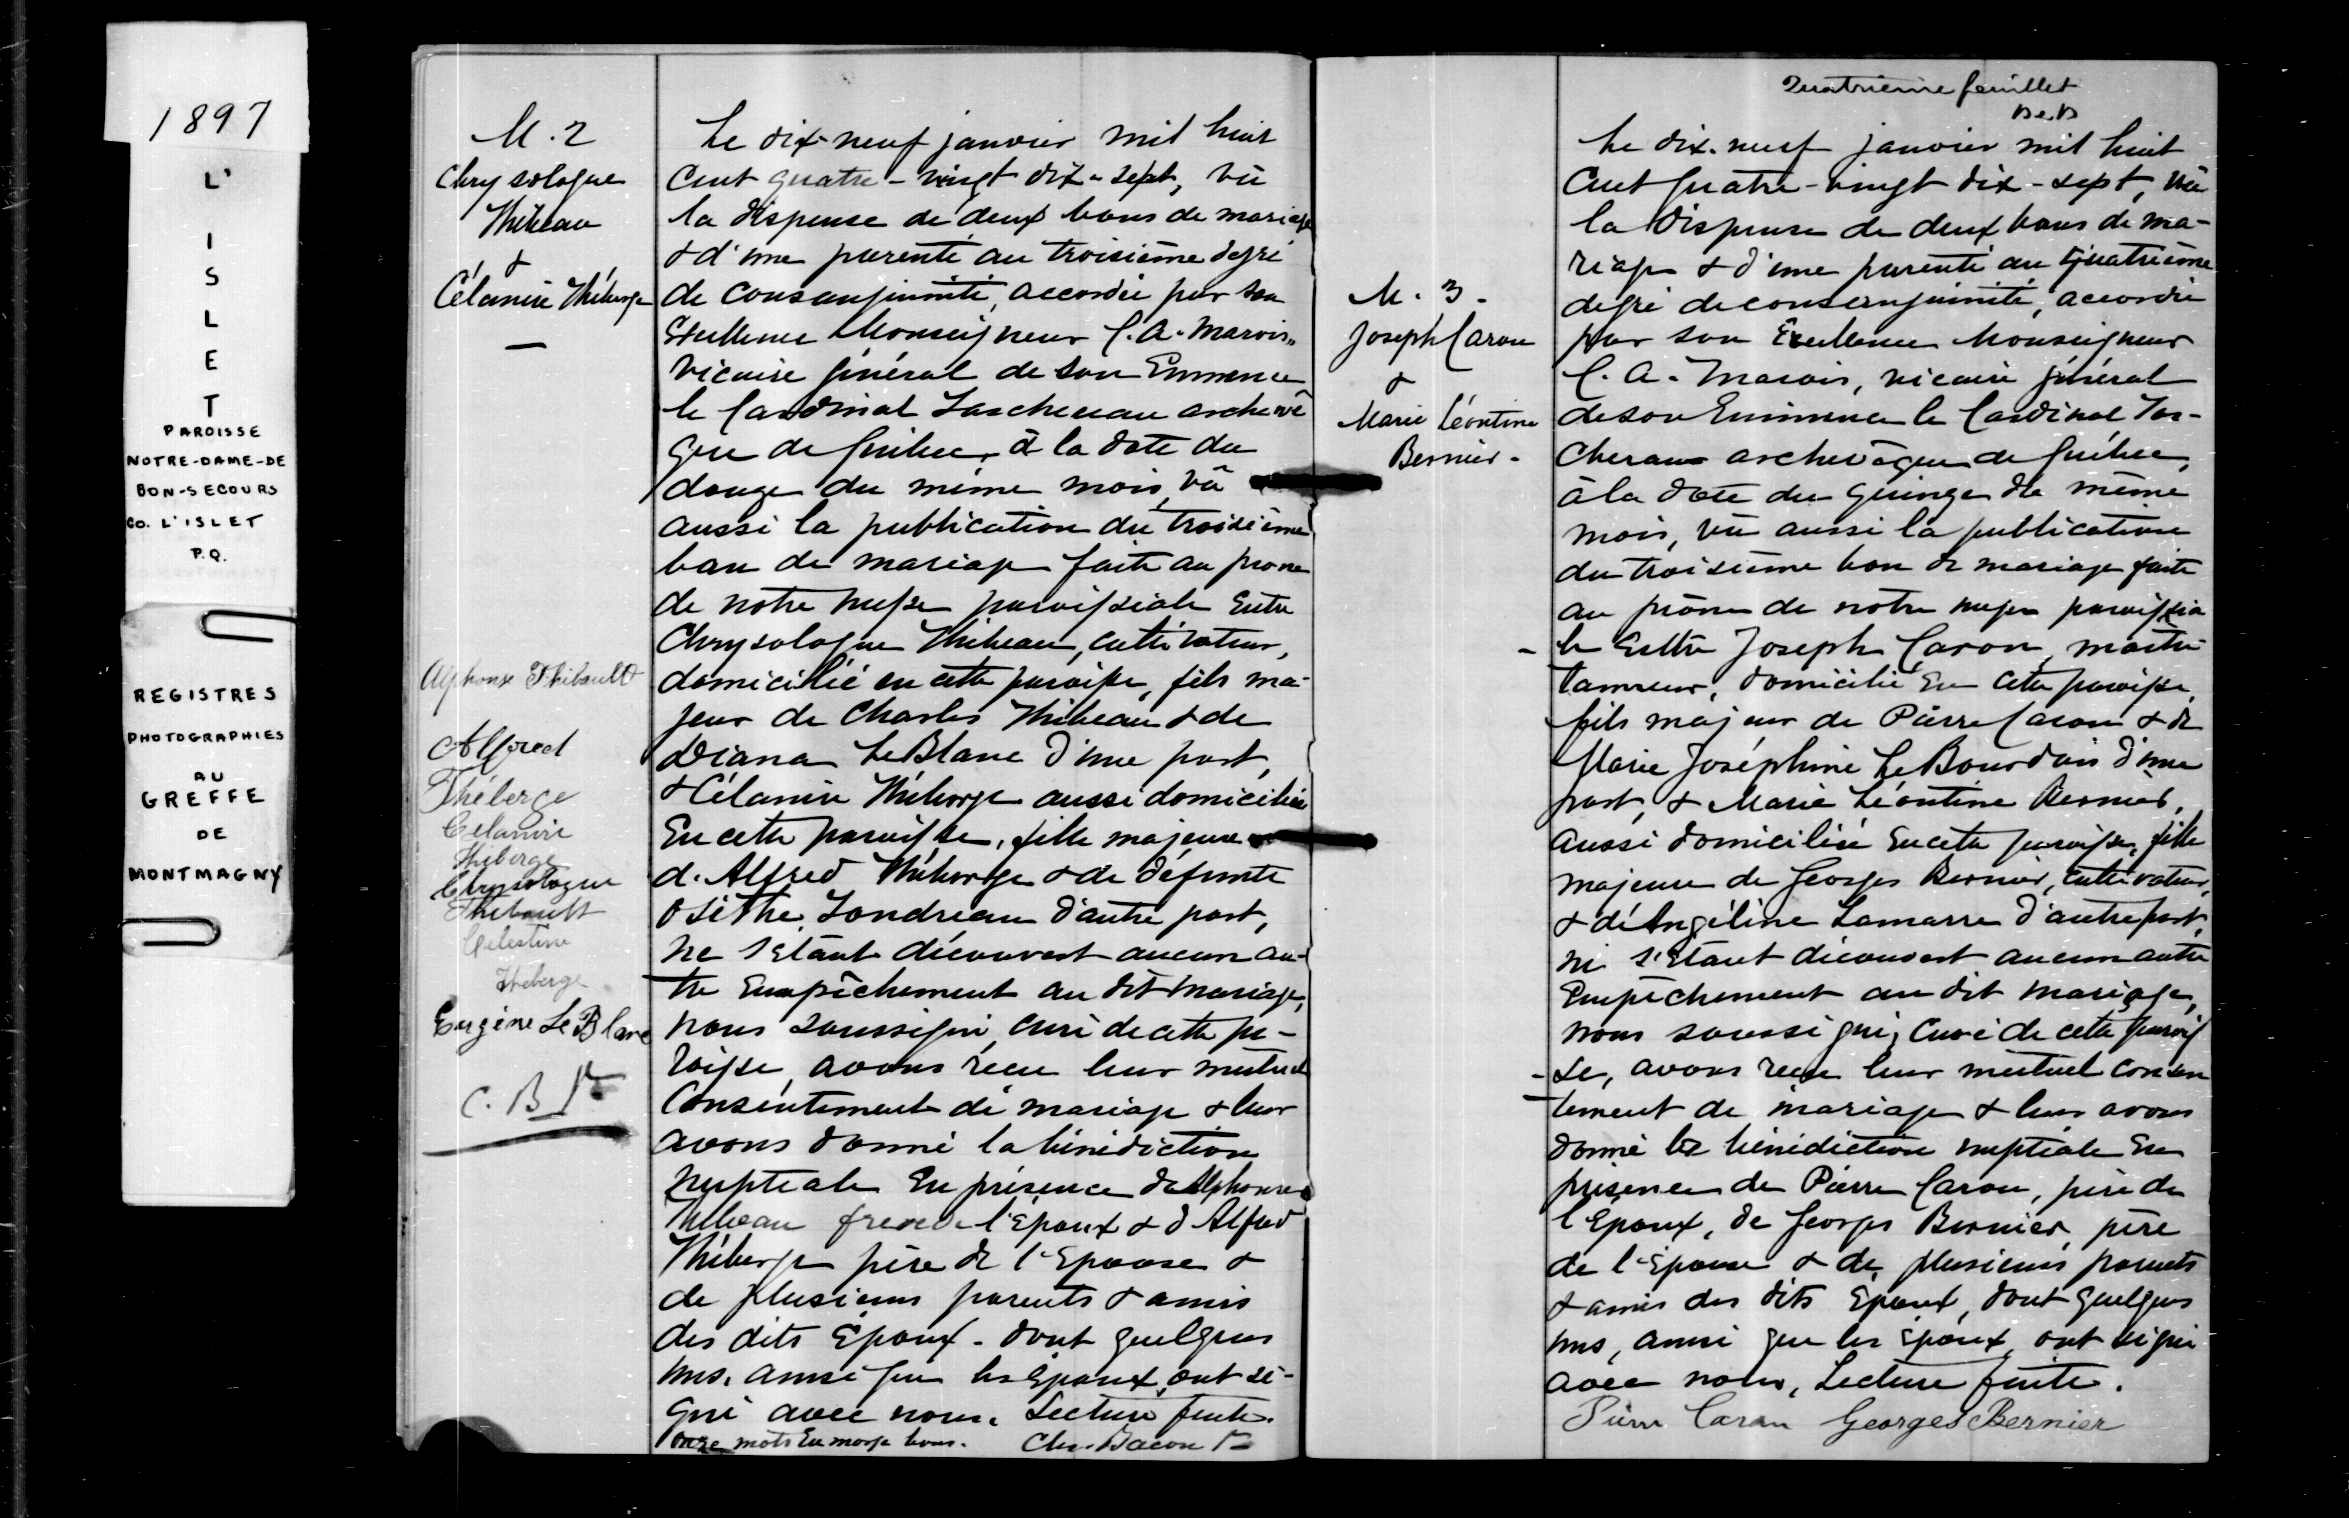 1897
L'
I
S
L
E
T
PAROISSE
NOTRE-DAME-DE
BON-SECOURS
CO. L'ISLET
P.Q.
REGISTRES
PHOTOGRAPHIES
AU
GREFFE
DE
MONTMAGNY
M. 2
Chrysologue
Thibeau
&
Célanire Théberge
Alphonse Thibault
Alfred
Théberge
Celanire
Théberge
Chrysologue
Thibault
Celestine
Theberge
Eugène Le Blanc
C. B Ptre
Le dix-neuf janvier mil huit
cent quatre-vingt dix-sept, vû
la dispense de deux bans de mariage
& d'une parenté au troisième degré
de consanguinité, accordée par son
Excellence Monseigneur C. A. Marois,
vicaire général de son Eminence
le Cardinal Taschereau archevê
que de Québec, à la date du
douze du même mois, vû
aussi la publication du troisième
ban de mariage faite au prone
de notre messe paroissiale entre
Chrysologue Thibeau, cultivateur,
domicilié en cette paroisse, fils ma-
jeur de Charles Thibeau & de
Diana LeBlanc d'une part,
& Célanire Théberge aussi domiciliée
en cette paroisse, fille majeure
d'Alfred Théberge & de défunte
Osithe Tondreau d'autre part,
ne s'étant découvert aucun au-
tre empêchement au dit mariage,
nous soussigné, curé de cette pa-
roisse, avons reçu leur mutuel
consentement de mariage & leur
avons donné la bénédiction
nuptiale en présence de Alphonse
Thibeau frere de l'époux & d'Alfred
Théberge père de l'épouse &
de plusieurs parents & amis
des dits époux - dont quelques
uns, ainsi que les époux, ont si-
gné avec nous. Lecture faite.
onze mots en marge bons. Chs. Bacon Ptre
Quatrième feuillet
M. 3.
Joseph Caron
&
Marie Léontine
Bernier.
Le dix-neuf janvier mil huit
cent quatre-vingt dix-sept, vû
la dispense de deux bans de ma-
riage & d'une parenté au quatrième
degré de consanguinité, accordée
par son Excellence Monseigneur
C. A. Marois, vicaire général
de son Eminence le Cardinal Tas-
chereau archevêque de Québec,
à la date du quinze du même
mois, vû aussi la publication
du troisième ban de mariage faite
au prône de notre messe paroissia
- le entre Joseph Caron,
domicilié en cette paroisse,
fils majeur de Pierre Caron & de
Marie Joséphine LeBourdais d'une
part, & Marie Léontine Bernier,
aussi domiciliée en cette paroisse, fille
majeure de Georges Bernier, cultivateur,
& de Angéline Lamarre d'autre part,
ne s'étant découvert aucun autre
empêchement au dit mariage,
nous soussigné, curé de cette parois
- se, avons reçu leur mutuel consen
- tement de mariage & leur avons
donné la bénédiction nuptiale en
présence de Pierre Caron, père de
l'époux, de Georges Bernier, père
de l'épouse & de plusieurs parents
& amis des dits époux, dont quelques
uns, ainsi que les époux, ont signé
avec nous, Lecture faite.
Pierre Caron Georges Bernier